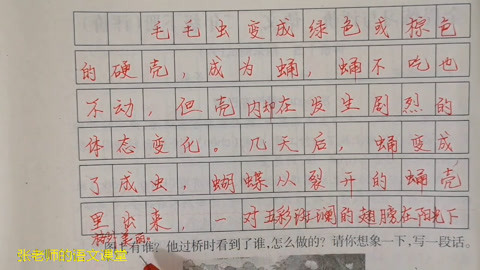 毛毛虫变成绿色或棕色
的硬壳，成为蛹，蛹不吃也
不动，但壳内却在发生剧烈的
体态变化。几天后，蛹变成
了成虫，蝴蝶从裂开的蛹壳
里出来，一对五彩斑斓的翅膀在阳光下
有谁？他过桥时看到了谁，怎么做的？请你想象一下，写一段话。
张老师的图文课堂